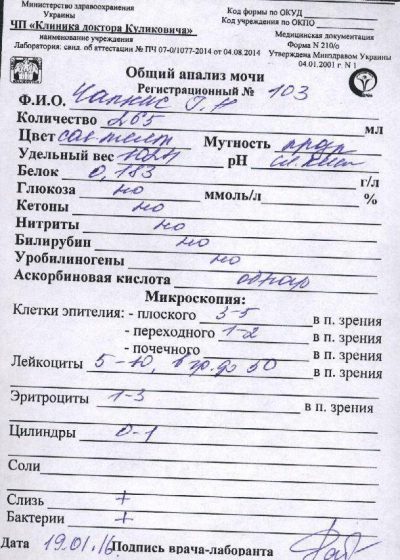 Министерство здравоохранения
Украины
ЧП «Клиника доктора Куликовича»
наименование учреждения
Лаборатория: свид. об аттестации № ПЧ 07-0/1077-2014 от 04.08.2014
Код формы по ОКУД
Код учреждения по ОКПО
Медицинская документация
Форма N 210/о
Утверждена Минздравом Украины
04.01.2001 г. N 1
Общий анализ мочи
Регистрационный № 103
Ф.И.О.
Количество 265 мл
Цвет Мутность
Удельный вес 1024 pH
Белок 0,183 г/л
Глюкоза но ммоль/л %
Кетоны но
Нитриты но
Билирубин но
Уробилиногены но
Аскорбиновая кислота обнар
Микроскопия:
Клетки эпителия: - плоского 3-5 в п. зрения
- переходного 1-2 в п. зрения
- почечного в п. зрения
Лейкоциты 5-10, в гр. до 50
Эритроциты 1-3 в п. зрения
Цилиндры 0-1
Соли
Слизь +
Бактерии +
Дата 19.01.16 Подпись врача-лаборанта